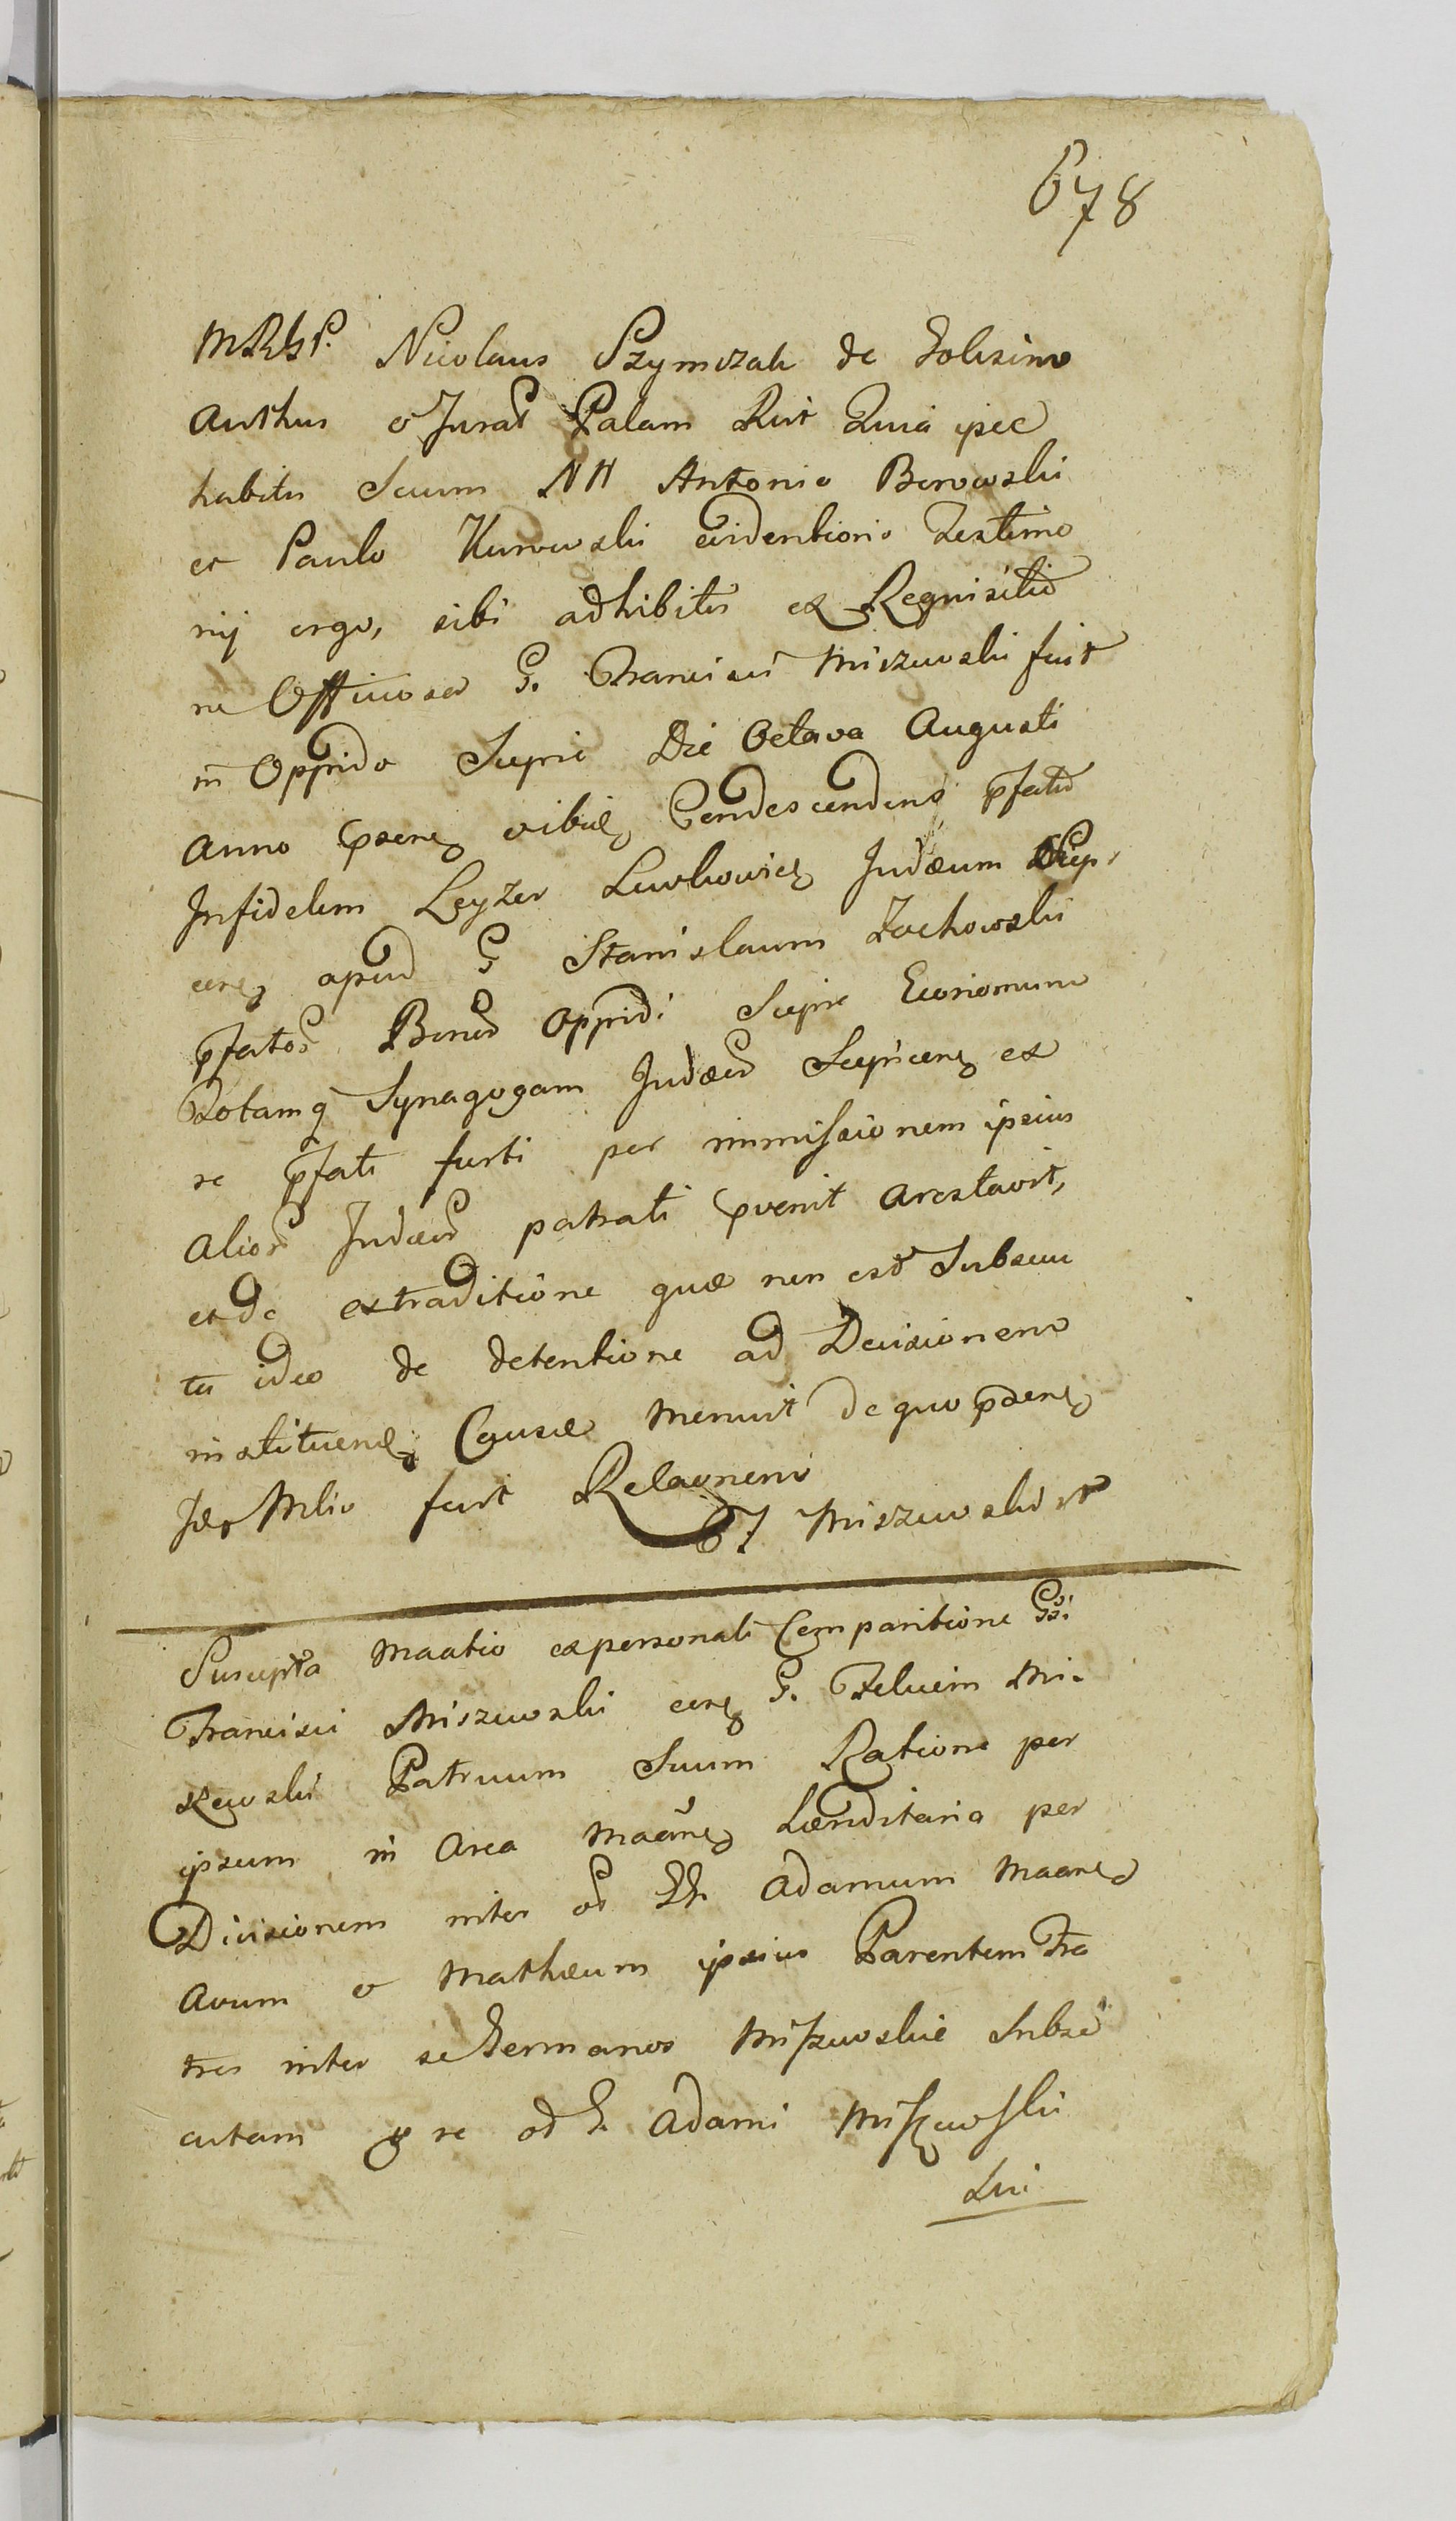 678
Nicolaus Szymczak de
Authus et Jurat Palam Rut Quia ipse
habitis Secum NN Antonio Borowski
et Paulo Kurowski evidentioris Testimo
nij ergo, sibi adhibitis ex Requisitio
ne Officiosa G. Francisci Miszewski fuit
in Oppido Sieprc Die Octava Augusti
Anno Condescendens pfatu
Infidelem Leyzer Lewkowicz Judæum Siep
cen apud G Stanislaum Zochowski
pfator Bonor Oppidi Sieprc Economum
Totamq Synagogam Judæor Siepricen ex
re pfati furti per immissionem ipsius
Alior Judæor patrati pvenit Arestavit,
et de extraditione quæ non est Subsecu
ta ideo de detentione ad Decisionem
instituen Causæ Monuit de quo psen
fecit Relaonem
F Miszewski
Suscepta ex personali Comparitione G:
Francisci Miszewski G. Felicem Mi-
szewski Patruum Suum Ratione per
ipsum in Area per
Divisionem inter od GG. Adamum
Avum et Mathæum ipsius Parentem Fra
tres inter se Germanos Miszewskie Subse
cutam re od G. Adami Miszewski